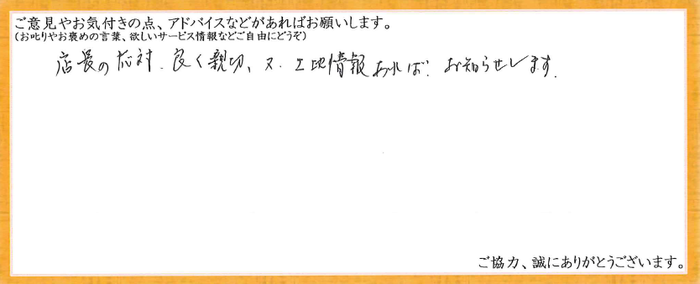 ご意見やお気付きの点、アドバイスなどがあればお願いします。
(お叱りやお褒めの言葉、欲しいサービス情報などご自由にどうぞ)
店長の応対、良く親切、又、土地情報あれば、お知らせします。
ご協力、誠にありがとうございます。